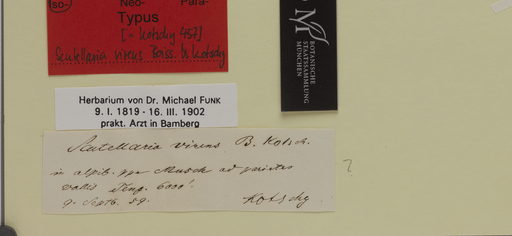 Iso-
Neo-
Para-
Typus
[= Kotschy 457]
Scutellaria virens Boiss. & Kotschy
M
BOTANISCHE
STAATSSAMMLUNG
MÜNCHEN
Herbarium von Dr. Michael FUNK
9. I. 1819 - 16. III. 1902
prakt. Arzt in Bamberg
Scutellaria virens. B. Kotsch.
in alpib. ppe Musch ad parietes
vallis 6000'.
9. Septb. 59.
Kotschy.
?